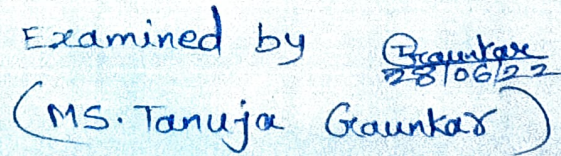 Examined by Gaunkar
28/06/22
(MS. Tanuja Gaunkar)